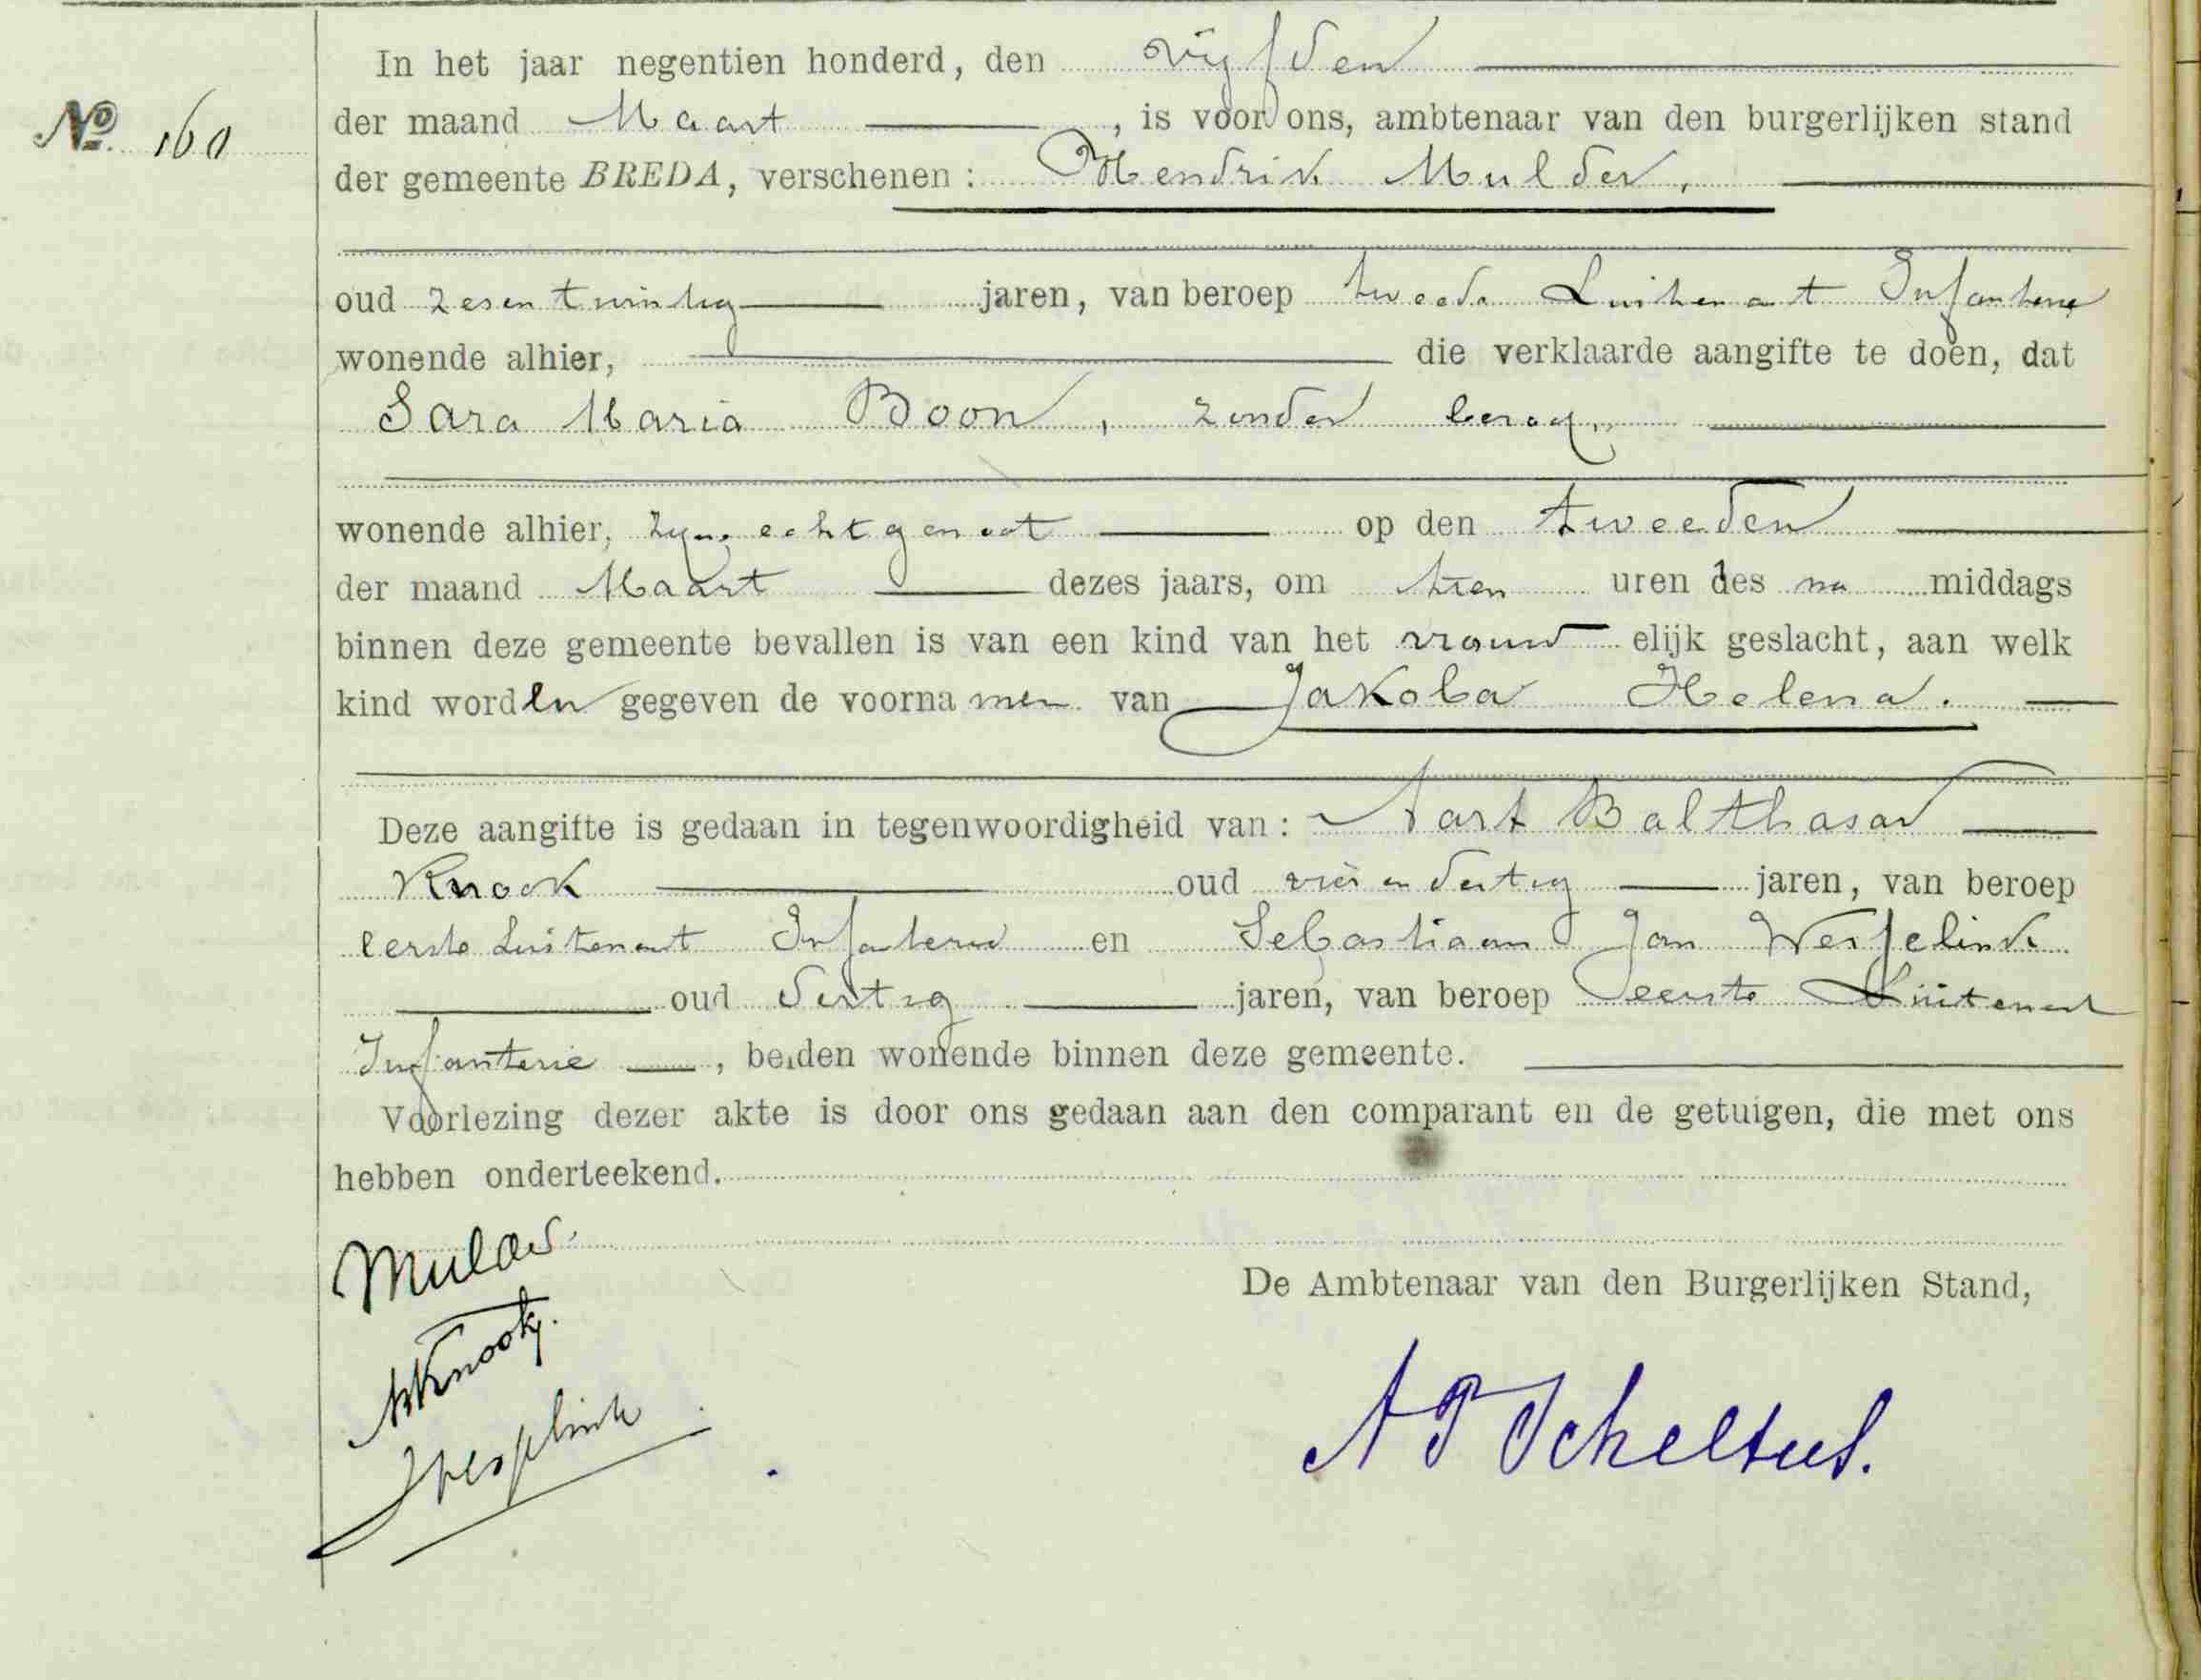 In het jaar negentien honderd, den vijfden
Nº 160
der maand Maart, is voor ons, ambtenaar van den burgerlijken stand
der gemeente BREDA, verschenen: Hendrik Mulder,
oud zesentwintig jaren, van beroep tweede Luitenant Infanterie
wonende alhier, die verklaarde aangifte te doen, dat
Sara Maria Boon, zonder beroep,
wonende alhier, zijne echtgenoot op den tweeden
der maand Maart dezes jaars, om tien uren des na middags
binnen deze gemeente bevallen is van een kind van het vrouw elijk geslacht, aan welk
kind worden gegeven de voorna men van Jakoba Helena.
Deze aangifte is gedaan in tegenwoordigheid van: Aart Balthasar
Knook oud vier en dertig jaren, van beroep
eerste Luitenant Infanterie en Sebastiaan Jan Wesselink
oud dertig jaren, van beroep eerste Luitenant
Infanterie, beiden wonende binnen deze gemeente.
Voorlezing dezer akte is door ons gedaan aan den comparant en de getuigen, die met ons
hebben onderteekend.
Mulder.
De Ambtenaar van den Burgerlijken Stand,
ABKnook.
Wesselink
A P Scheltus.